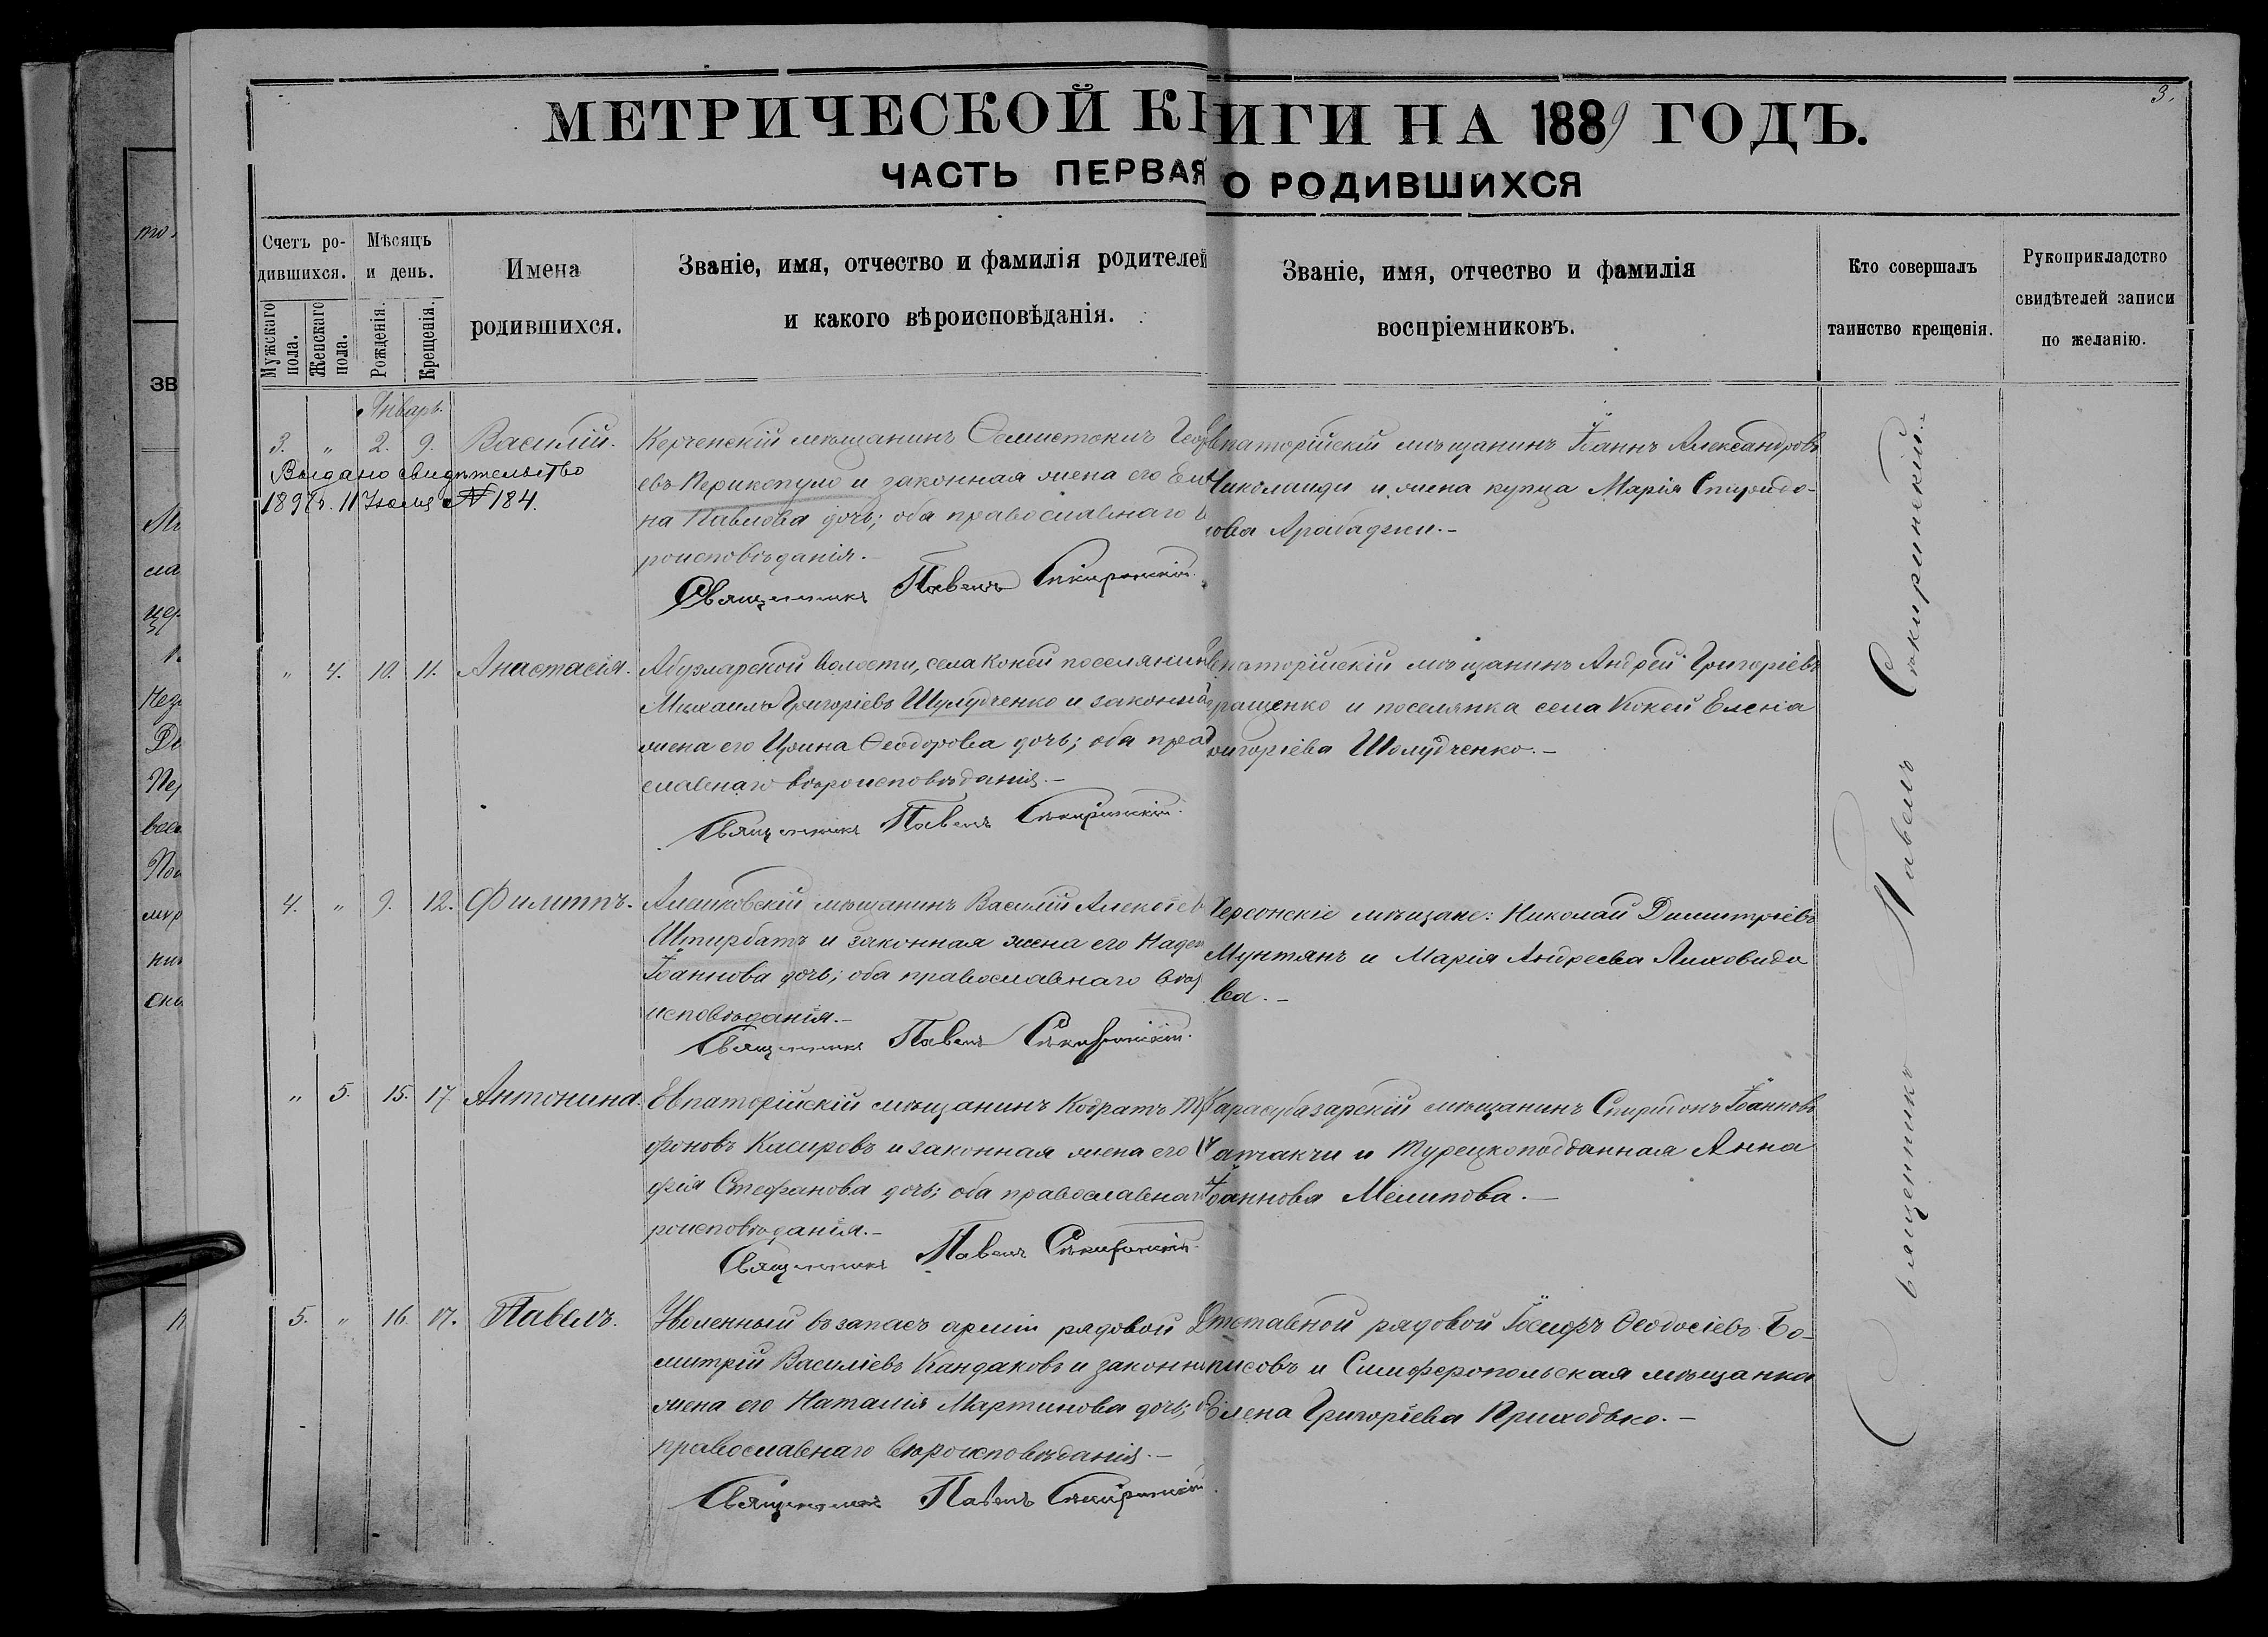 МЕТРИЧЕСКОЙ КНИГИ НА 1889 ГОДЪ.
ЧАСТЬ ПЕРВАЯ О РОДИВШИХСЯ
3.
Счетъ ро-
дившихся.
Мужскаго пола.
Женскаго пола.
Мѣсяцъ
и день.
Рожденія.
Крещенія.
Имена
родившихся.
Званіе, имя, отчество и фамилія родителей
и какого вѣроисповѣданія.
Званіе, имя, отчество и фамилія
воспріемниковъ.
Кто совершалъ
таинство крещенія.
Рукоприкладство
свидѣтелей записи
по желанію.
Январь.
3. " 2. 9. Василій.
Выдано свидѣтельство
11 Іюля № 184.
Керченскій мѣщанинъ Ѳемистоклъ Геор
евъ Перикопуло и законная жена его
на Павлова дочь; оба православнаго
роисповѣданія.-
Священникъ Павелъ Сѣкиринскій.
Евпаторійскій мѣщанинъ Іоаннъ Александровъ
Николаиди и жена купца Марія Спиридо-
нова Арабаджи.-
" 4. 10. 11. Анастасія.
Абузларской волости, села Кокей поселянинъ
Михаилъ Григоріевъ Шулудченко и законная
жена его Ирина Ѳеодорова дочь; оба право
славнаго вѣроисповѣданія.-
Священникъ Павелъ Сѣкиринскій.
Евпаторійскій мѣщанинъ Андрей Григоріевъ
ращенко и поселянка села Кокей Елена
Григоріева Шолудченко.-
4. " 9. 12. Филиппъ.
Алешковскій мѣщанинъ Василій Алексѣев
Штирбатъ и законная жена его Надеж
Іоаннова дочь; оба православнаго вѣро
исповѣданія.-
Священникъ Павелъ Сѣкиринскій.
Херсонскіе мѣщане: Николай Димитріевъ
Мунтянъ и Марія Андреева Лиховидо
ва.-
" 5. 15. 17. Антонина.
Евпаторійскій мѣщанинъ Кодратъ Три
фоновъ Касировъ и законная жена его
фія Стефанова дочь; оба православнаго
роисповѣданія.-
Священникъ Павелъ Сѣкиринскій.
Карасубазарскій мѣщанинъ Спиридонъ Іоанновъ
и Турецкоподданная Анна
Іоаннова Мелипова.-
5. " 16. 17. Павелъ.
Уволенный въ запасъ арміи рядовой Ди
митрій Василіевъ Кандаковъ и законная
жена его Наталія Мартинова дочь; оба
православнаго вѣроисповѣданія.-
Священникъ Павелъ Сѣкиринскій.
Отставной рядовой Іосифъ Ѳеодосіевъ Бо-
рисовъ и Симферопольская мѣщанка
Елена Григоріева Приходько.-
Священникъ Павелъ Сѣкиринскій.